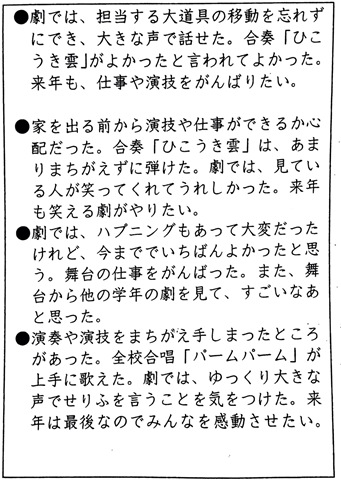 ●劇では、担当する大道具の移動を忘れず
にでき、大きな声で話せた。合奏「ひこ
うき雲」がよかったと言われてよかった。
来年も、仕事や演技をがんばりたい。
●家を出る前から演技や仕事ができるか心
配だった。合奏「ひこうき雲」は、あま
りまちがえずに弾けた。劇では、見てい
る人が笑ってくれてうれしかった。来年
も笑える劇がやりたい。
●劇では、ハプニングもあって大変だった
けれど、今まででいちばんよかったと思
う。舞台の仕事をがんばった。また、舞
台から他の学年の劇を見て、すごいなあ
と思った。
●演奏や演技をまちがえ手しまったところ
があった。全校合唱「バームバーム」が
上手に歌えた。劇では、ゆっくり大きな
声でせりふを言うことを気をつけた。来
年は最後なのでみんなを感動させたい。